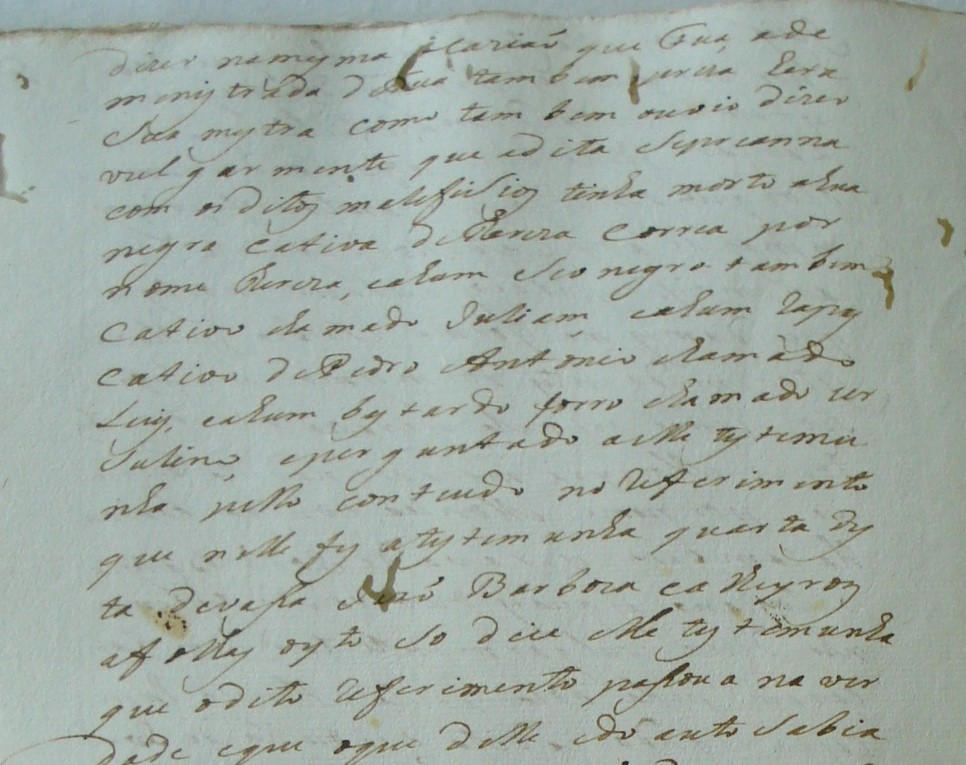 dizer na mesma que sua, a de
menystrada d sua tambem Era
Sua mestra como tambem ouvio dizer
vulgarmente que a dita Sipreanna
com os ditos maleficios tinha morto a hua
negra cativa de Thereza Correa por
nome Thereza, e a hum Seo negro tambem
cativo chamado Juliam, e a hum
cativo de Pedro António chamado
Luis, e a hum bastardo forro chamado
e perguntado a elle testemu
nha pello conteudo no Referimento
que nelle fes a testemunha quarta des
ta devasa José Barboza
a folhas oyto so dice elle testemunha
que o dito referimento pasava na ver
dade e que o que delle Sabia